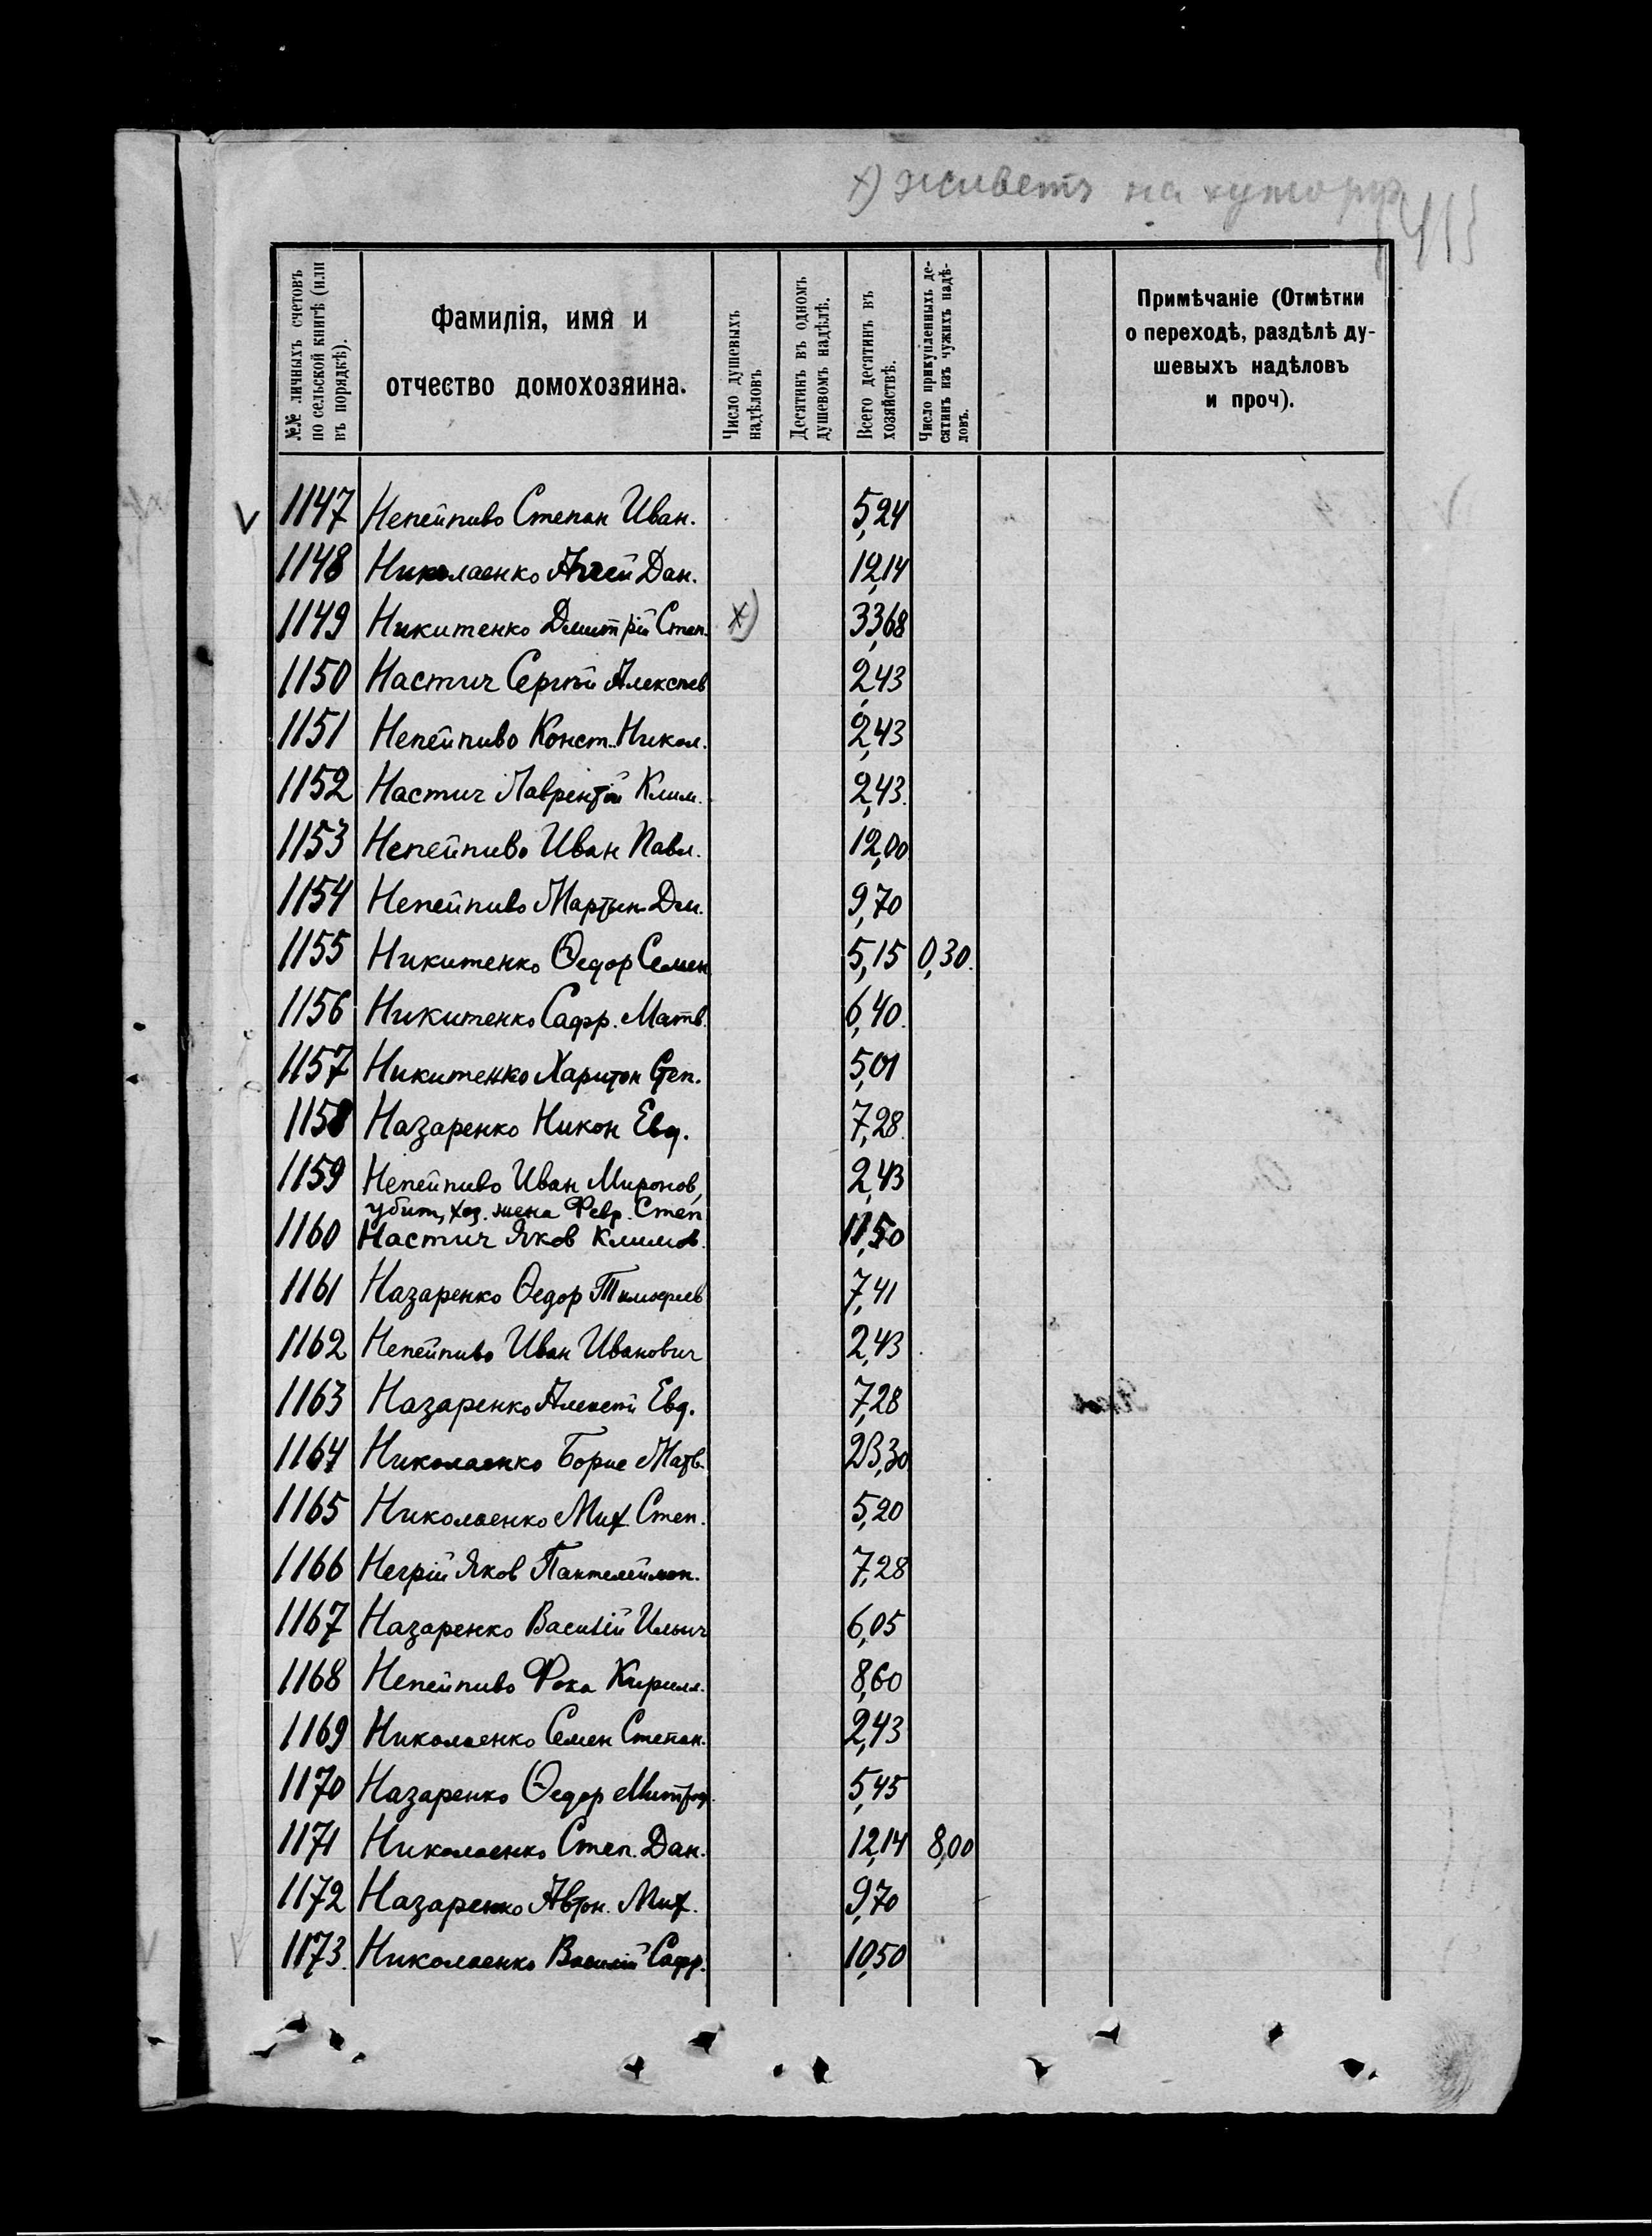 х) живетъ на хуторѣ
№№ личныхъ счетовъ по сельской книгѣ (или въ порядкѣ).
Фамилія, имя и отчество домохозяина.
Число душевыхъ надѣловъ
Десятинъ въ одномъ душевомъ надѣлѣ.
Всего десятинъ въ хозяйствѣ.
Число прикупленныхъ десятинъ изъ чужихъ надѣловъ.
Примѣчаніе (Отмѣтки о переходѣ, раздѣлѣ душевыхъ надѣловъ и проч).
V 1147 Непейпиво Степан Иван. 5,24
1148 Николаенко Дан. 12,14
1149 Никитенко Дмитрій Степ. х) 33,68
1150 Настич Сергѣй Алексѣев 2,43
1151 Непейпиво Конст. Никол. 2,43
1152 Настич Лаврентій Клим. 2,43
1153 Непейпиво Иван Павл. 12,00
1154 Непейпиво Мартын Дм. 9,70
1155 Никитенко Ѳедор Семен 5,15 0,30
1156 Никитенко Сафр. Матв. 6,40
1157 Никитенко Харитон Степ. 5,01
1158 Назаренко Никон Евд. 7,28
1159 Непейпиво Иван Миронов, 2,43
убит, хоз. жена Февр. Степ
1160 Настич Яков Климов. 11,50
1161 Назаренко Ѳедор Тимофеев 7,41
1162 Непейпиво Иван Иванович 2,43
1163 Назаренко Алексѣй Евд. 7,28
1164 Николаенко Борис Матв. 23,30
1165 Николаенко Мих. Степ. 5,20
1166 Негрій Яков Пантелеймон. 7,28
1167 Назаренко Василій Ильич 6,05
1168 Непейпиво Фока Кирилл. 8,60
1169 Николаенко Семен Степан. 2,43
1170 Назаренко Ѳедор Митроф. 5,45
1171 Николаенко Степ. Дан. 12,14 8,00
1172 Назаренко Автон. Мих. 9,70
1173 Николаенко Василій Сафр. 10,50